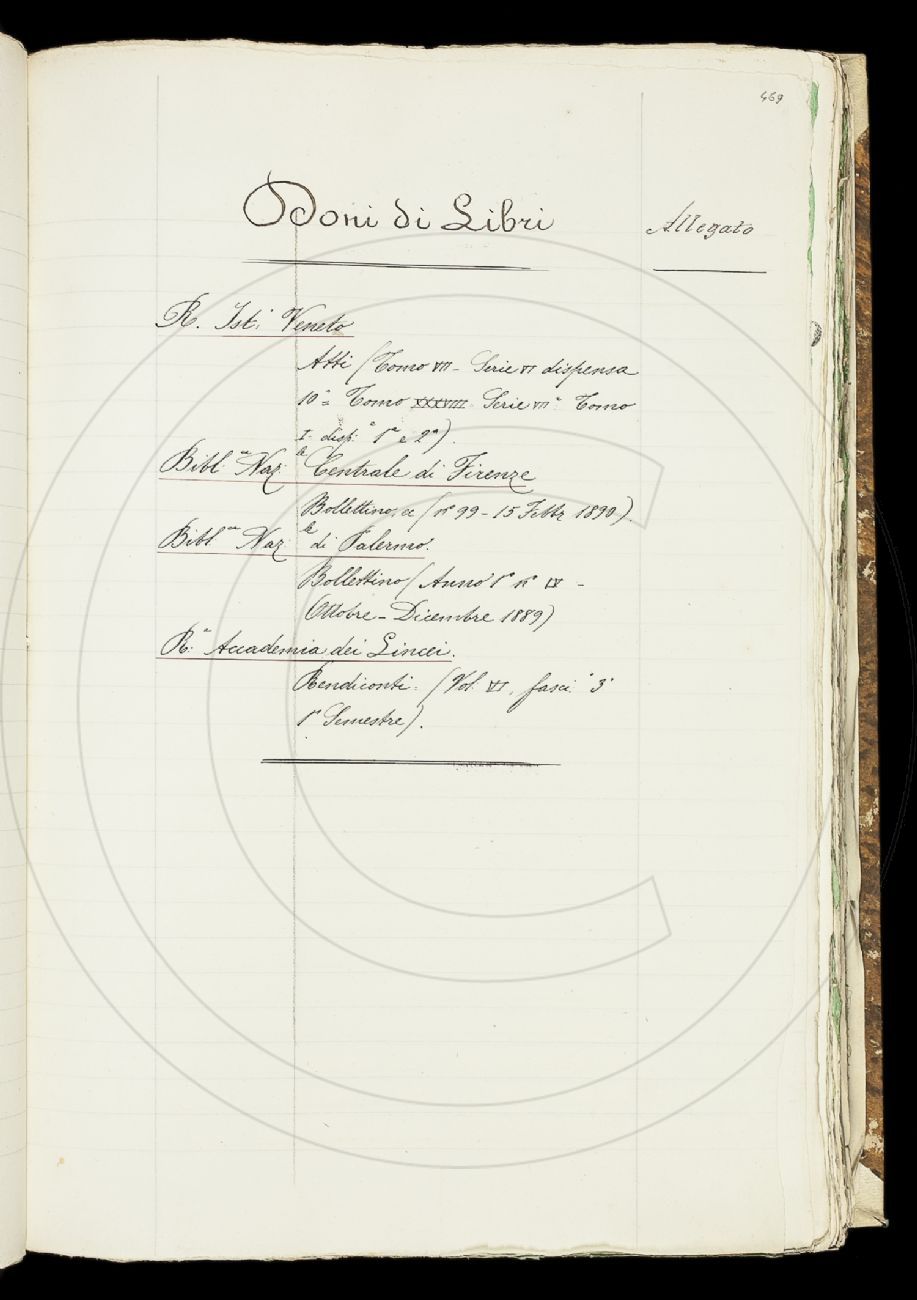 469
Doni di Libri
Allegato
R. Ist.° Veneto
Atti (Tomo VII - Serie VI dispensa
10ª = Tomo XXXVIII. Serie VIIª Tomo
I. disp.ᵉ 1ª e 2ª).
Bibl.ᶜᵃ Naz.ˡᵉ Centrale di Firenze
Bollettino, (n° 99 - 15 Febbr 1890).
Bibl.ᶜᵃ Naz.ˡᵉ di Palermo.
Bollettino (Anno 1° n° IV -
Ottobre - Dicembre 1889)
R.ª Accademia dei Lincei.
Rendiconti. (Vol. VI, fasci.° 3°
1° Semestre).